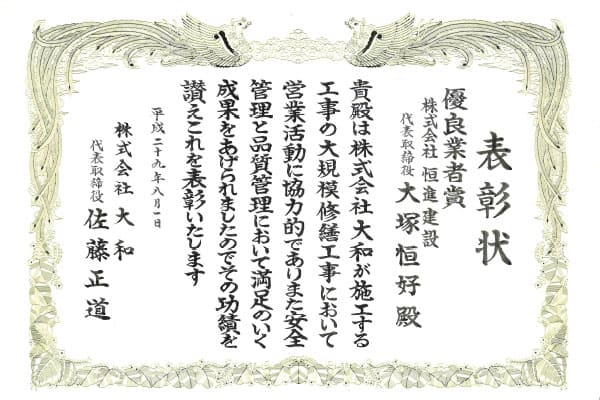 表彰状
優良業者賞
株式会社 恒進建設
代表取締役 大塚恒好殿
貴殿は株式会社大和が施工する
工事の大規模修繕工事において
営業活動に協力的でありまた安全
管理と品質管理において満足のいく
成果をあげられましたのでその功績を
讃えこれを表彰いたします
平成二十九年八月一日
株式会社 大和
代表取締役 佐藤正道